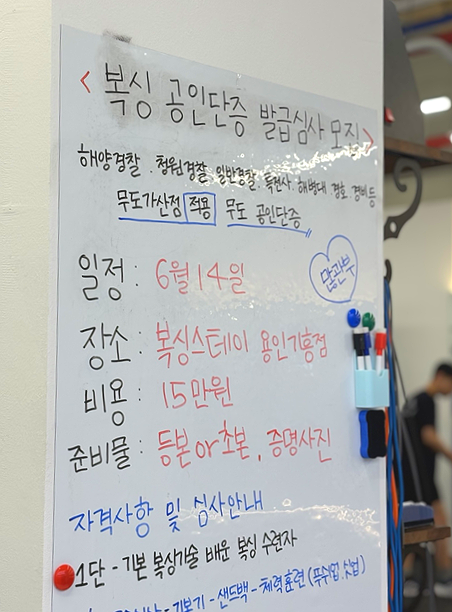 < 복싱 공인단증 발급심사 모집 >
해양경찰 . 청원경찰 . 일반경찰 . 특전사 . 해병대 경호 . 경비 등
무도가산점 적용 무도 공인단증
많관부
일정 : 6월 14일
장소 : 복싱스테이 용인기흥점
비용 : 15만원
준비물 : 등본 or 초본 , 증명사진
자격사항 및 심사안내
1단 - 기본 복싱기술 배운 복싱 수련자
- 기본기 - 샌드백 - 체력훈련 (푸쉬업, 싯업)